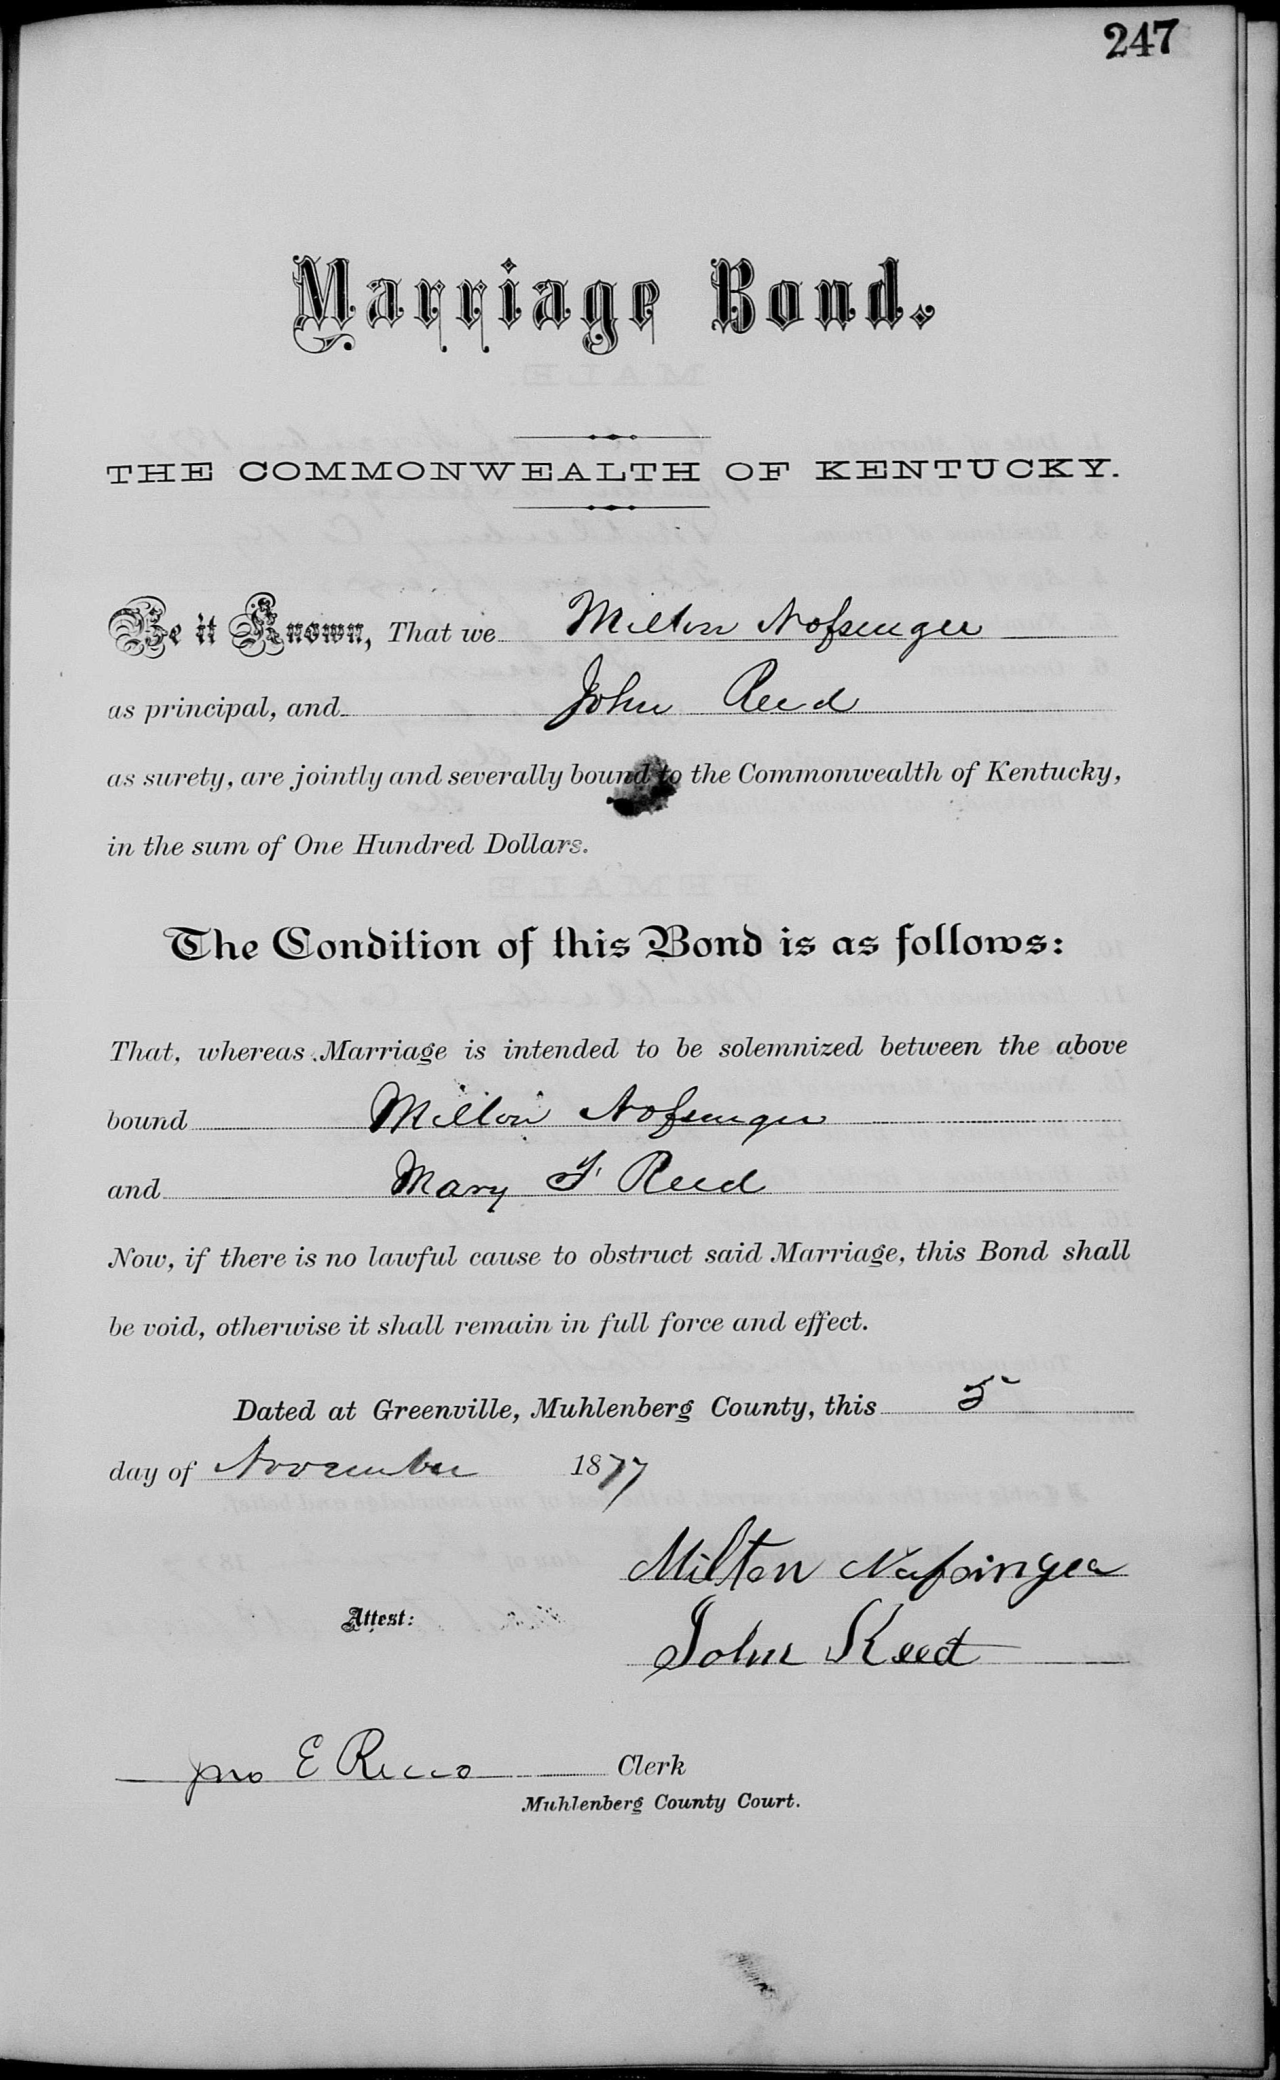 247
Marriage Bond.
THE COMMONWEALTH OF KENTUCKY.
Be it Known, That we Milton Nofsinger
as principal, and John Reed
as surety, are jointly and severally bound to the Commonwealth of Kentucky,
in the sum of One Hundred Dollars.
The Condition of this Bond is as follows:
That, whereas Marriage is intended to be solemnized between the above
bound Milton Nofsinger
and Mary F Reed
Now, if there is no lawful cause to obstruct said Marriage, this Bond shall
be void, otherwise it shall remain in full force and effect.
Dated at Greenville, Muhlenberg County, this 5
day of November 1877
Milton Nofsinger
Attest:
John Reed
Jno E Reno Clerk
Muhlenberg County Court.